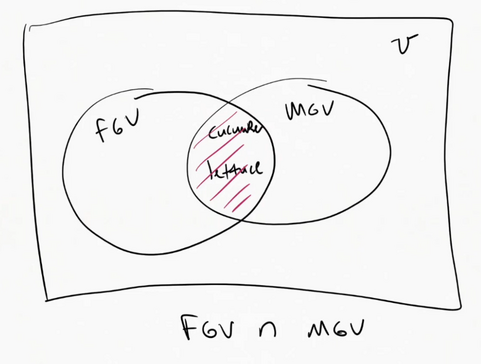 U
FGV
MGV
cucumber
lettuce
FGV ∩ MGV